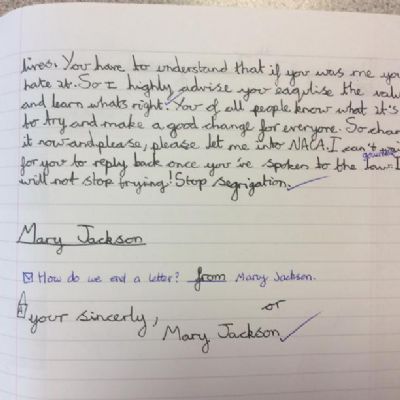 lives. You have to understand that if you was me you
hate it. So I highly advise you eaqulise the valu
and learn whats right. You of all people know what it's
to try and make a good change for everyone. So chan
it now and please, please let me into NACA. I can't wai
for you to reply back once you've spoken to the
will not stop trying! Stop segrigation.
Mary Jackson
How do we end a letter? from Mary Jackson.
or
your sincerly,
Mary Jackson